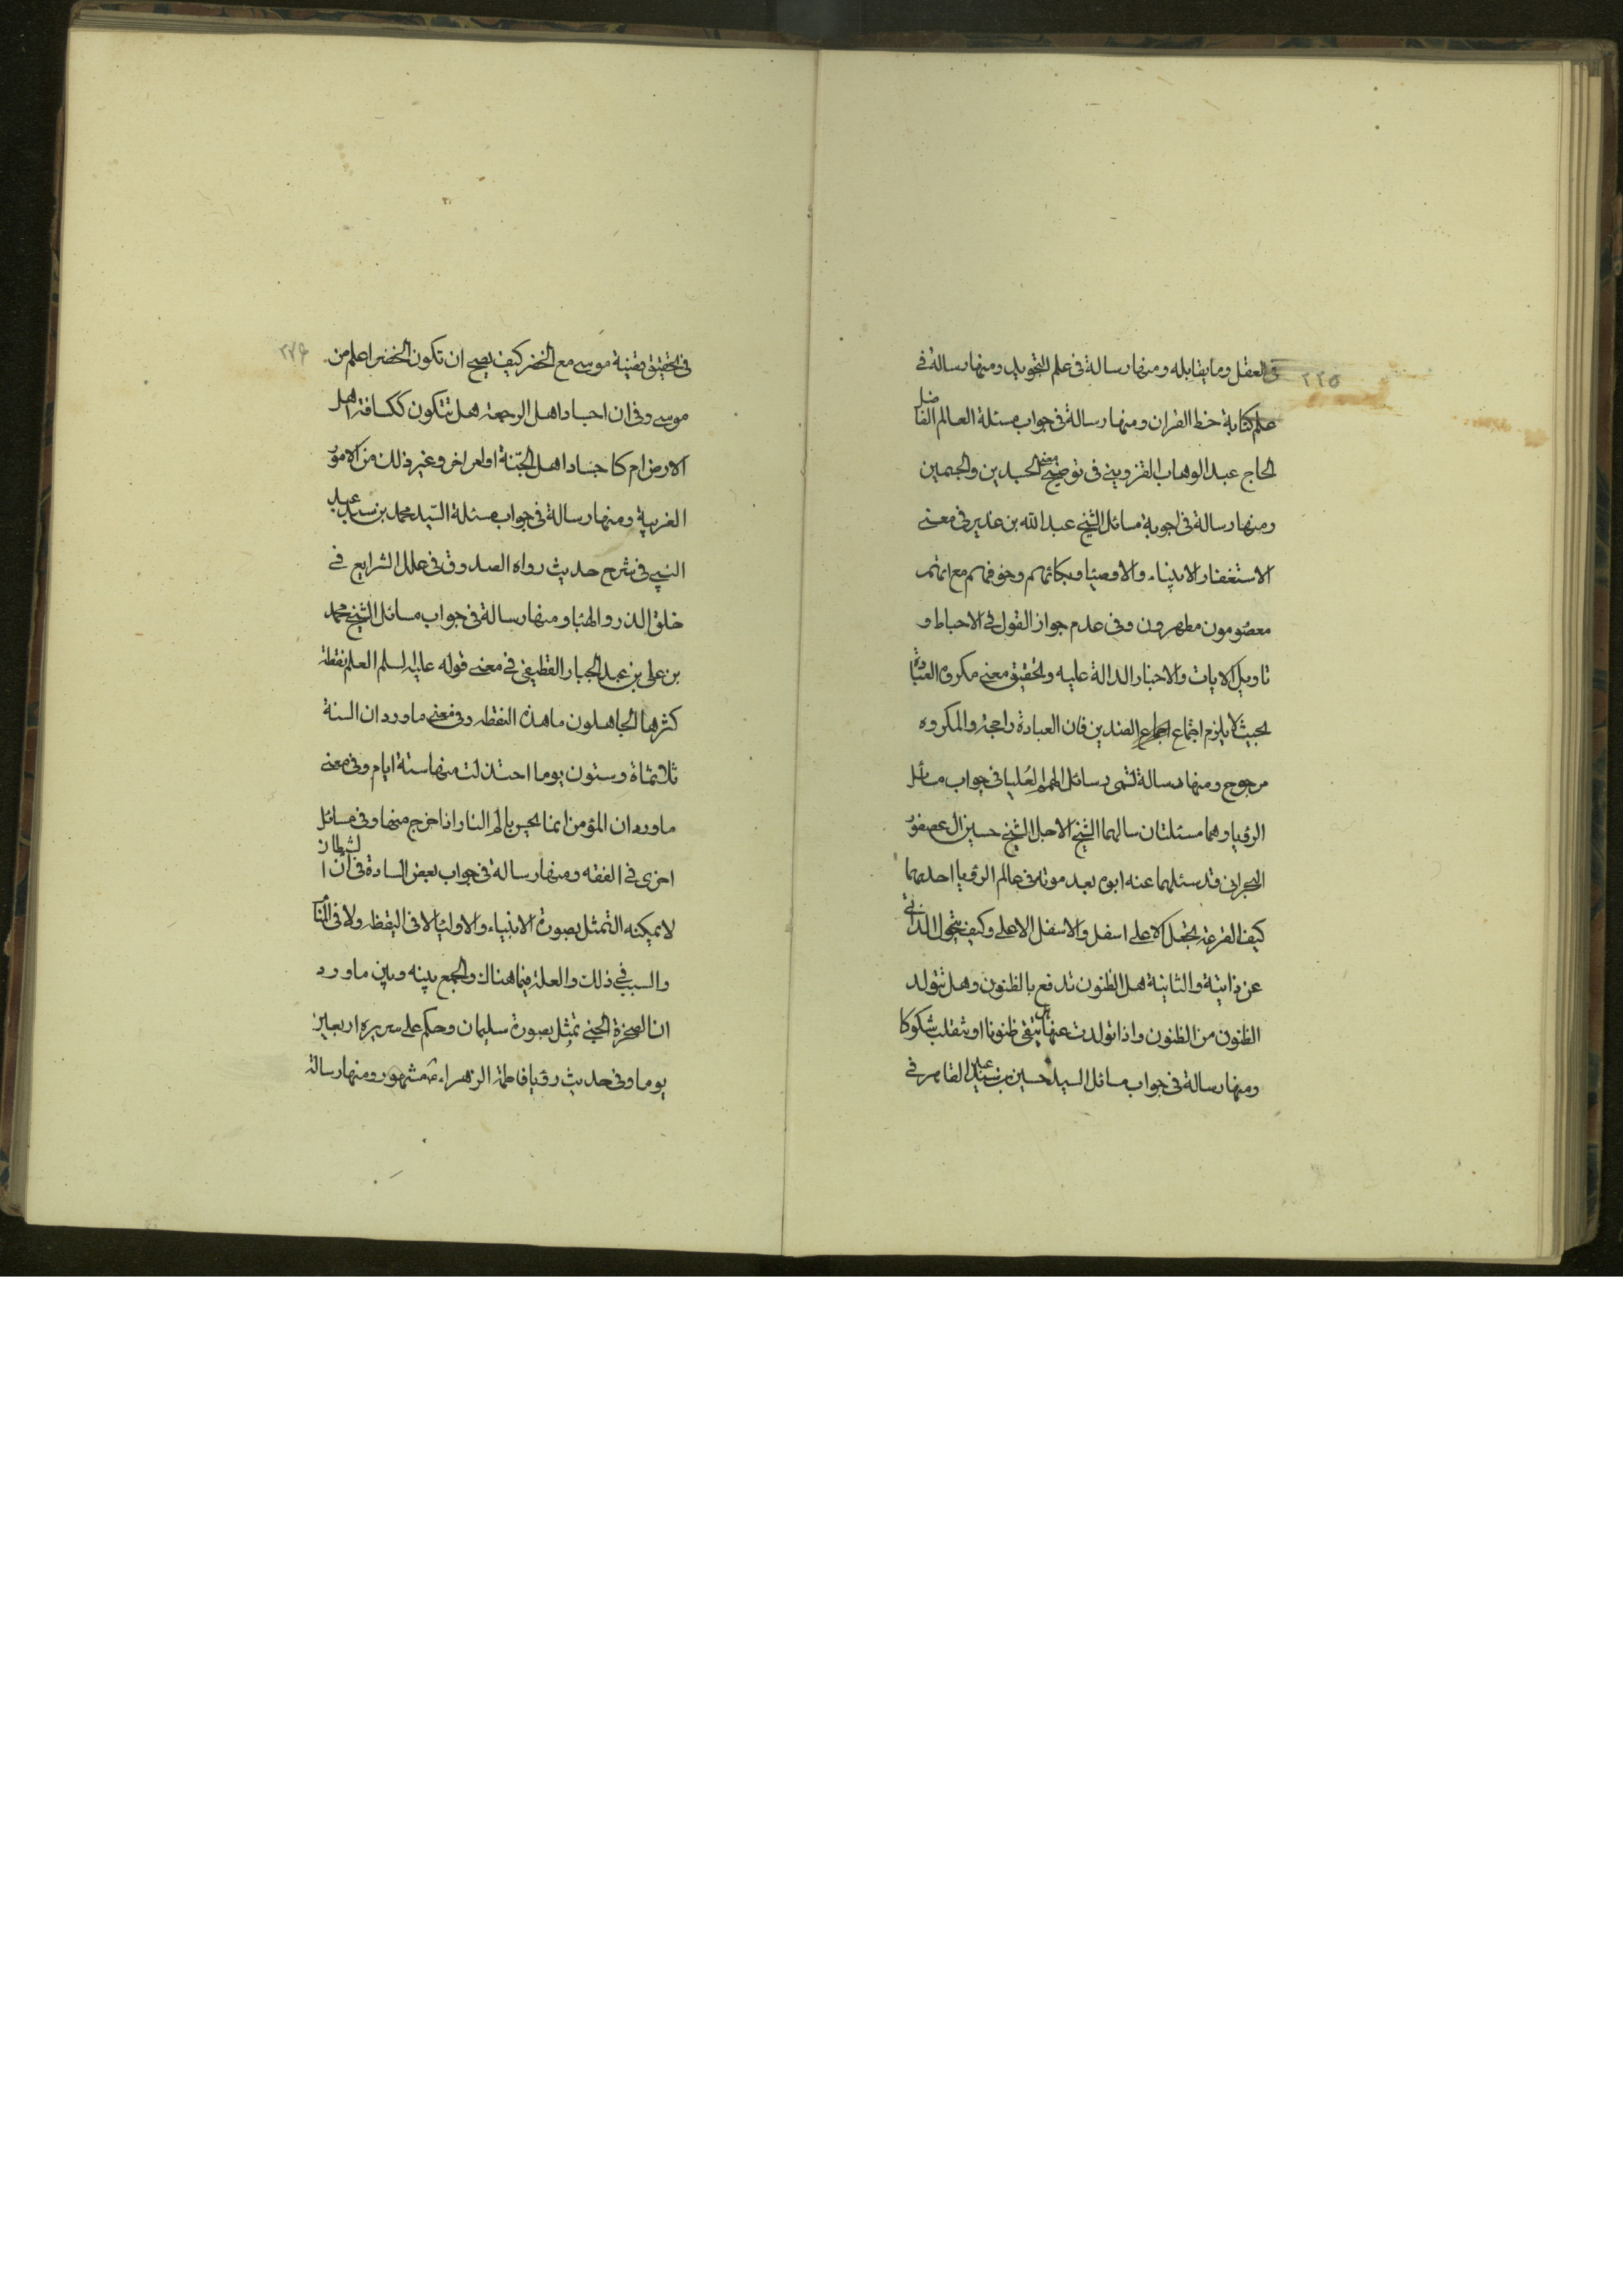 ٢٢٥
في العقل وما يقابله ومنها رسالة في علم التجويد ومنها رسالة في
علم كتابة خط القران ومنها رسالة في جواب مسئلة العالم الفاضل
الحاج عبد الوهاب القزويني في توضيح معنى الجسدين والجسمين
ومنها رسالة في اجوبة مسائل الشيخ عبد الله بن غدير في معنى
الاستغفار الانبياء والاوصياء وبكائهم وخوفهم مع انهم
معصومون مطهرون وفي عدم جواز القول في الاحباط و
تاويل الايات والاخبار الدالة عليه وتحقيق معنى مكروه العبادة
بحيث لا يلزم اجتماع الضدين فان العبادة راجحة والمكروه
مرجوح ومنها رسالة تسمى رسائل الهمم العليا في جواب مسائل
الرؤيا وهما مسئلتان سالهما الشيخ الاجل الشيخ حسين ال عصفور
البحراني وقد سئلهما عنه ابوه بعد موته في عالم الرؤيا احدهما
كيف القرعة تجعل الاعلى اسفل والاسفل الاعلى وكيف يتحول الذاتي
عن ذاتيته والثانية هل الظنون تدفع بالظنون وهل تتولد
الظنون من الظنون واذا تولدت عنها هل تبقى ظنونا او تنقلب شكوكا
ومنها رسالة في جواب مسائل السيد حسين بن سيد عبد القاهر في
٢٧۶
في تحقيق قضية موسى مع الخضر كيف يصح ان تكون الخضر اعلم من
موسى وفي ان اجساد اهل الرجعة هل تتكون ككسافة اهل
الارض ام كاجساد اهل الجنة او امر اخر وغير ذلك من الامور
الغريبة ومنها رسالة في جواب مسئلة السيد محمد بن سيد عبد
النبي في شرح حديث رواه الصدوق في علل الشرايع في
خلق الذر والهبا ومنها رسالة في جواب مسائل الشيخ محمد
بن علي بن عبد الجبار القطيفي في معنى قوله عليه السلم العلم نقطة
كثرها الجاهلون ما هذه النقطة وفي معنى ما ورد ان السنة
ثلثمائة وستون يوما اختزلت منها ستة ايام وفي معنى
ما ورد ان المؤمن انما يحس بالم النار اذا خرج منها وفي مسائل
اخرى في الفقه ومنها رسالة في جواب بعض السادة في ان الشيطان
لا يمكنه التمثل بصورة الانبياء والاولياء لا في اليقظة ولا في المنام
والسبب في ذلك والعلة فيما هنالك والجمع بينه وبين ما ورد
ان الصخرة الجني تمثل بصورة سليمان وحكم على سريره اربعين
يوما وفي حديث رؤيا فاطمة الزهراء ع مشهور ومنها رسالة